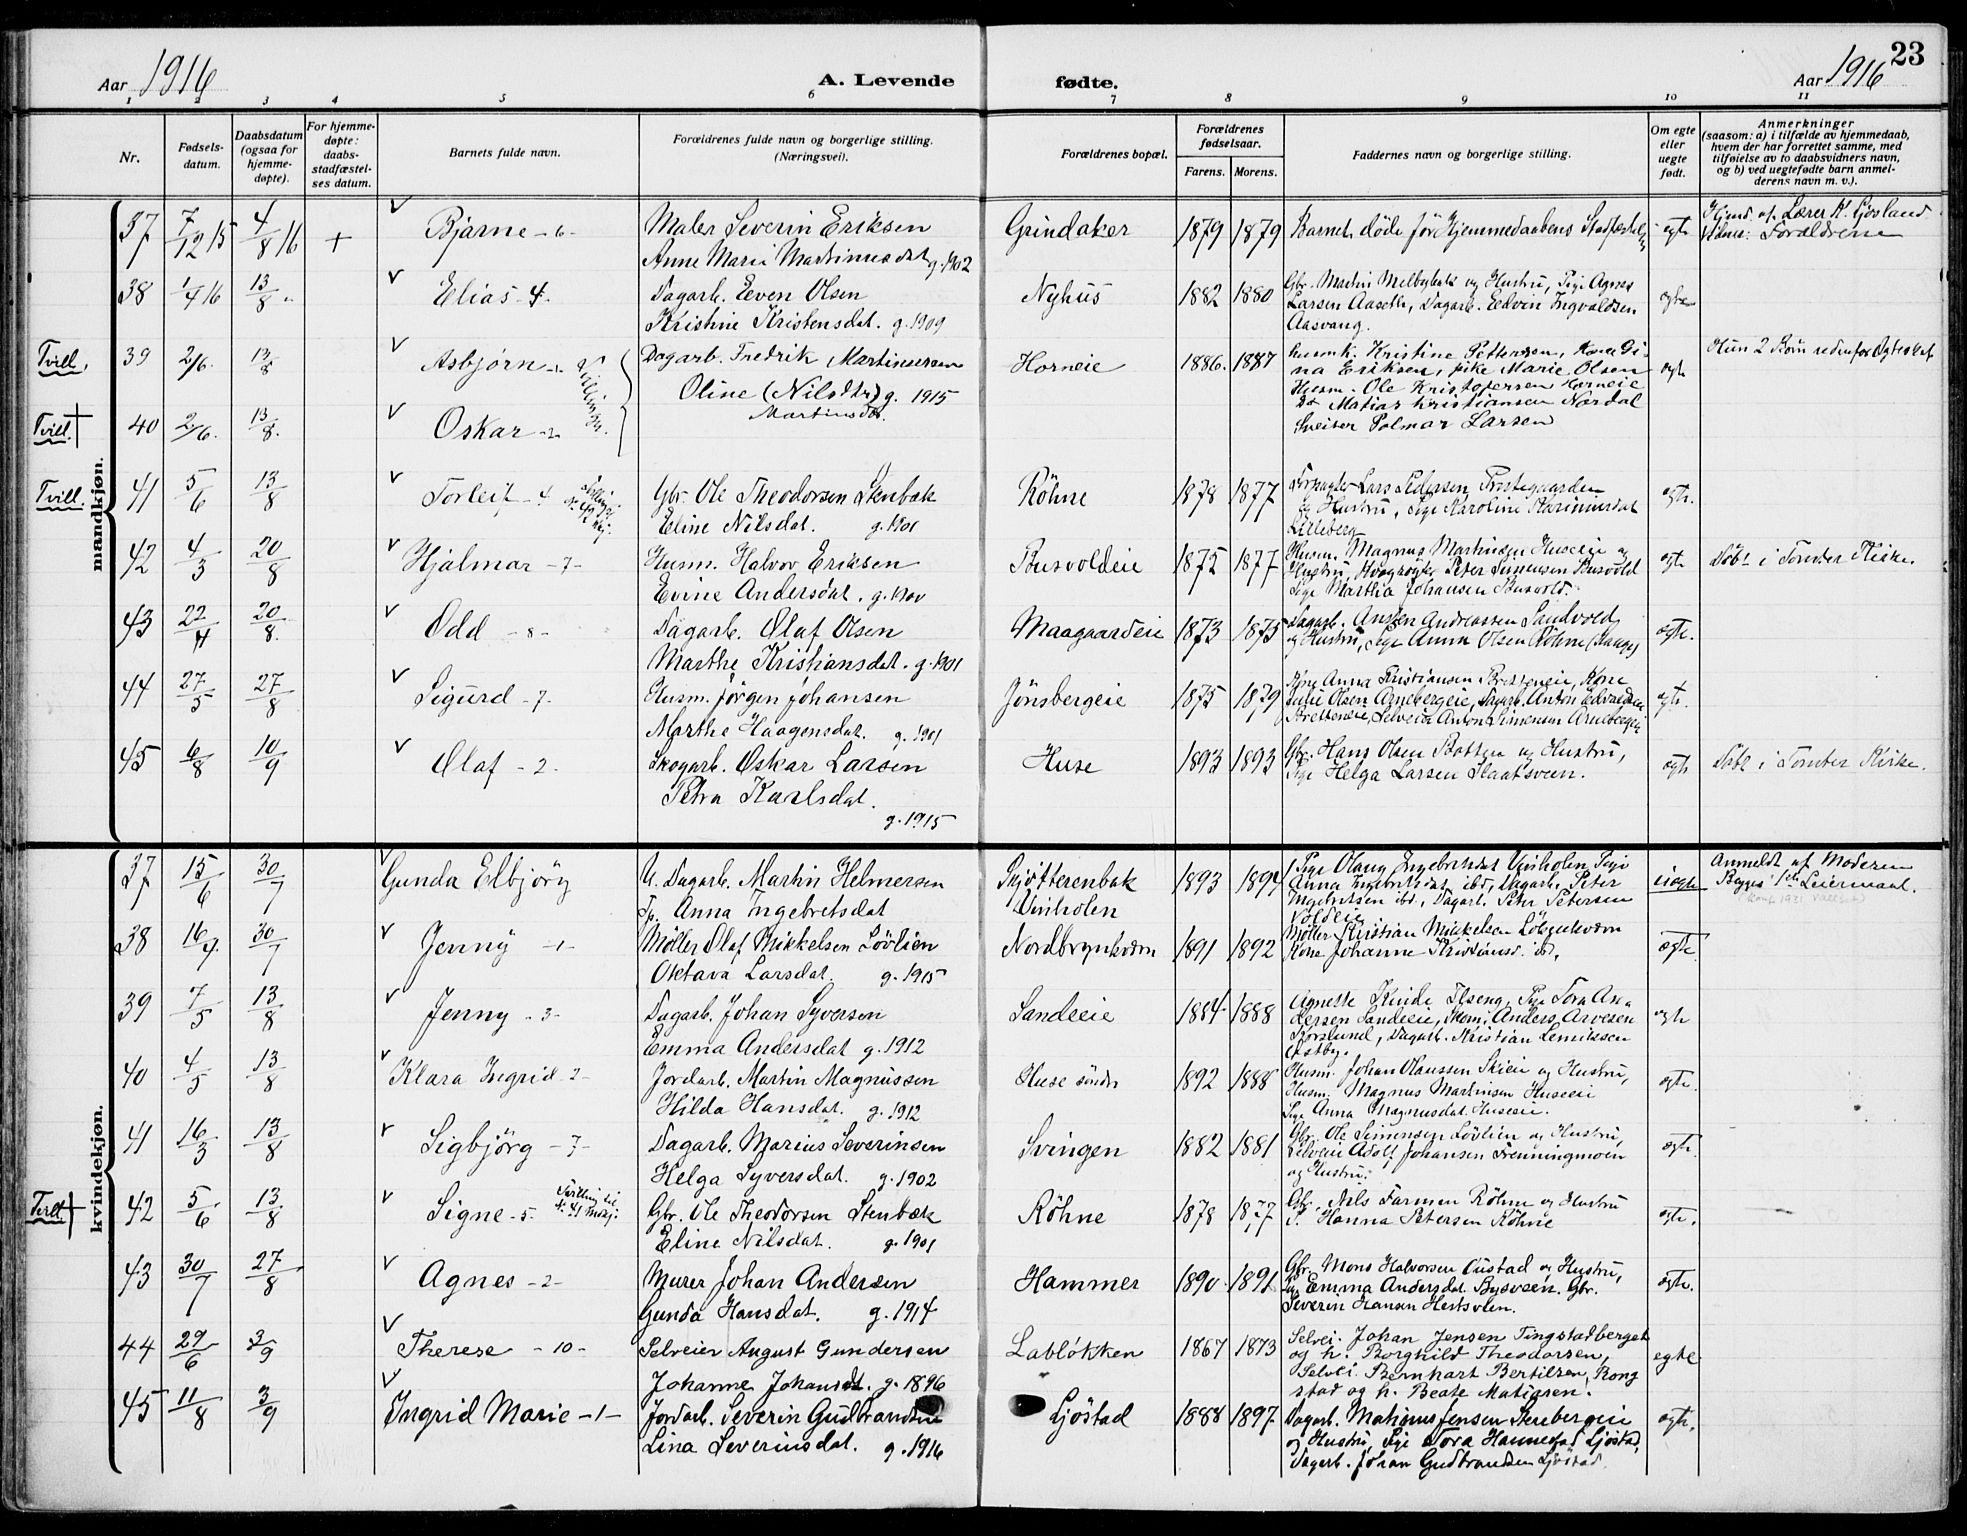 Aar 1916
A. Levende fødte.
Aar 1916
23
1 2 3 4 5 6 7 8 9 10 11
Nr.
Fødsels-
datum.
Daabsdatum
(ogsaa for
hjemme-
døpte).
For hjemme-
døpte:
daabs-
stadfæstel-
ses datum.
Barnets fulde navn.
Forældrenes fulde navn og borgerlige stilling.
(Næringsvei).
Forældrenes bopæl.
Forældrenes
fødselsaar.
Farens. Morens.
Faddernes navn og borgerlige stilling.
Om egte
eller
uegte
født.
Anmerkninger
(saasom: a) i tilfælde av hjemmedaab,
hvem der har forrettet samme, med
tilføielse av to daabsvidners navn,
og b) ved uegtefødte barn anmel-
derens navn m. v.).
mandkjøn.
37 7/12 15 4/8 16 + Bjarne - 6 - Maler Severin Eriksen Grindaker 1879 1879 Barnet døde før Hjemmedaabens egte Hjemd. af Lærer K. Gjøsland
Anne Marie Martinusdat g. 1902 Vidner: Forældrene
38 1/4 16 13/8 " Elias - 4 - Dagarb. Even Olsen Nyhus 1882 1880 Gbr. Martin Melbybak og Hustru, Pige Agnes egte
Kristine Kristensdat. g. 1909 Larsen Aaseth, Dagarb. Edvin Ingvaldsen
Aasvang.
Tvill. 39 2/6. 13/8 Asbjørn - 1 Dagarb. Fredrik Martinusen Horneie 1886. 1887 husmk. Kristine Pettersen, Kone Gi- egte Hun 2 Børn
Oline (Nilsdtr) g. 1915 na Eriksen, pike Marie Olsen
Martinsdat. Husm. Ole Kristofersen Horneie
Tvill. † 40 2/6. 13/8. Oskar - 2 Do Matias Kristiansen Nordal
Sveiser Palmar Larsen
Tvill. 41 5/6 13/8 Torleif - 4 Gbr. Ole Theodorsen Stenbæk Röhne 1878 1877 Lars Pedersen Prestegaarden egte.
Eline Nilsdat. g. 1901 og Hustru, Pige Karoline
Lilleberg
42 4/3 20/8 Hjalmar - 7 - Husm. Halvor Eriksen Busvoldeie 1875 1877 Husm. Magnus Martinsen Huseeie og egte Döbt i Tomter Kirke.
Evine Andersdat. Hustru, Peter Simensen Busvold
Pige Martha Johansen Busvold.
43 22/4 20/8. Odd - 8 - Dagarb. Olaf Olsen Maagaardeie 1873 1875 Dagarb. Andreassen Sandvold egte.
Marthe Kristiansdat. g. 1901 og Hustru, Pige Anna Olsen Röhne
44 27/5 27/8 Sigurd - 7 - Husm. Jörgen Johansen Jönsbergeie 1875 1879 Kone Anna Kristiansen Bretteneie, Kone egte.
Marthe Haagensdat. g. 1901 Julie Olsen Arnebergeie, Dagarb. Anton
Bretteneie, Selveier Anton Simensen Arnebergeie
45 6/8 10/9 Olaf - 2 - Skogarb. Oskar Larsen Huse 1893 1893 Gbr. Hans Olsen og Hustru, egte Döbt i Tomter Kirke.
Petra Karlsdat. Pige Helga Larsen Slaatsveen.
g. 1915
kvindekjøn.
37 15/6 30/7 Gunda Elbjörg U. Dagarb. Martin Helmersen Skjötterenbak 1893 1894 Pige Olaug Ingebretsdat Viuholen, Pige uegte Anmeldt af Moderen
Tp. Anna Ingebretsdat Viuholen Anna Ingebretsdat ibd, Dagarb. Peter Begges 1ste Leiermaal.
Ingebretsen ibd, Dagarb. Peter Petersen
Voldeie
38 16/4 30/7 Jenny - 1 - Møller Olaf Mikkelsen Lövlien Nordbrynkværn 1891 1892 Møller Kristian Mikkelsen egte
Oktava Larsdat. g. 1915 Kone Johanne Kristiansd. ibd.
39 7/5 13/8 Jenny - 3 - Dagarb. Johan Syversen Sandeeie 1884 1888 Agnette Ilseng, Pige Tora An- egte
Emma Andersdat g. 1912 dersen Sandeeie, Anders Arvesen
Dagarb. Kristian
Østby.
40 4/5 13/8 Klara Ingrid - 2 - Jordarb. Martin Magnussen Huse söndre 1892 1888 Husm. Johan Olaussen Skieie og Hustru, egte.
Hilda Hansdat. g. 1912 Husm. Magnus Martinsen Huseeie
Pige Anna Magnusdat Huseeie.
41 16/3 13/8 Sigbjörg - 7 - Dagarb. Marius Severinsen Svingen 1882 1881 Gbr. Ole Simensen Lövlien og Hustru, egte.
Helga Syversdat. g. 1902 Selveier Adolf Johansen
og Hustru.
Tvill. † 42 5/6 13/8 Signe - 5 Tvilling til No 41 Mdkj. Gbr. Ole Theodorsen Stenbæk Röhne 1878 1877 Gbr. Nils Farmen Röhne og Hustru egte.
Eline Nilsdat. g. 1901 P. Hanna Petersen Röhne
43 30/7 27/8 Agnes - 2 - Murer Johan Andersen Hammer 1890 1891 Gbr. Mons Halvorsen Oustad og Hustru, egte.
Gunda Hansdat. g. 1914 Pige Emma Andersdat Bysveen. Gbr.
Severin Hansen
44 29/6 3/9 Therese - 10 - Selveier August Gundersen Labløkken 1867 1873 Selvei. Johan Jensen Tingstadberget egte
Johanne Johansdt g. 1896 og h. Borghild Theodorsen,
Selvei Bernhart Bertilsen, Rong
stad og h. Beate Matiasen.
45 11/8 3/9 Ingrid Marie - 1 - Jordarb. Severin Gudbrandsen Ljöstad 1888 1897 Dagarb. Mathinus Jensen egte.
Lina Severinsdat. g. 1916 og Hustru, Pige Tora Ljöstad,
Dagarb. Johan Gudbrandsen Ljöstad.